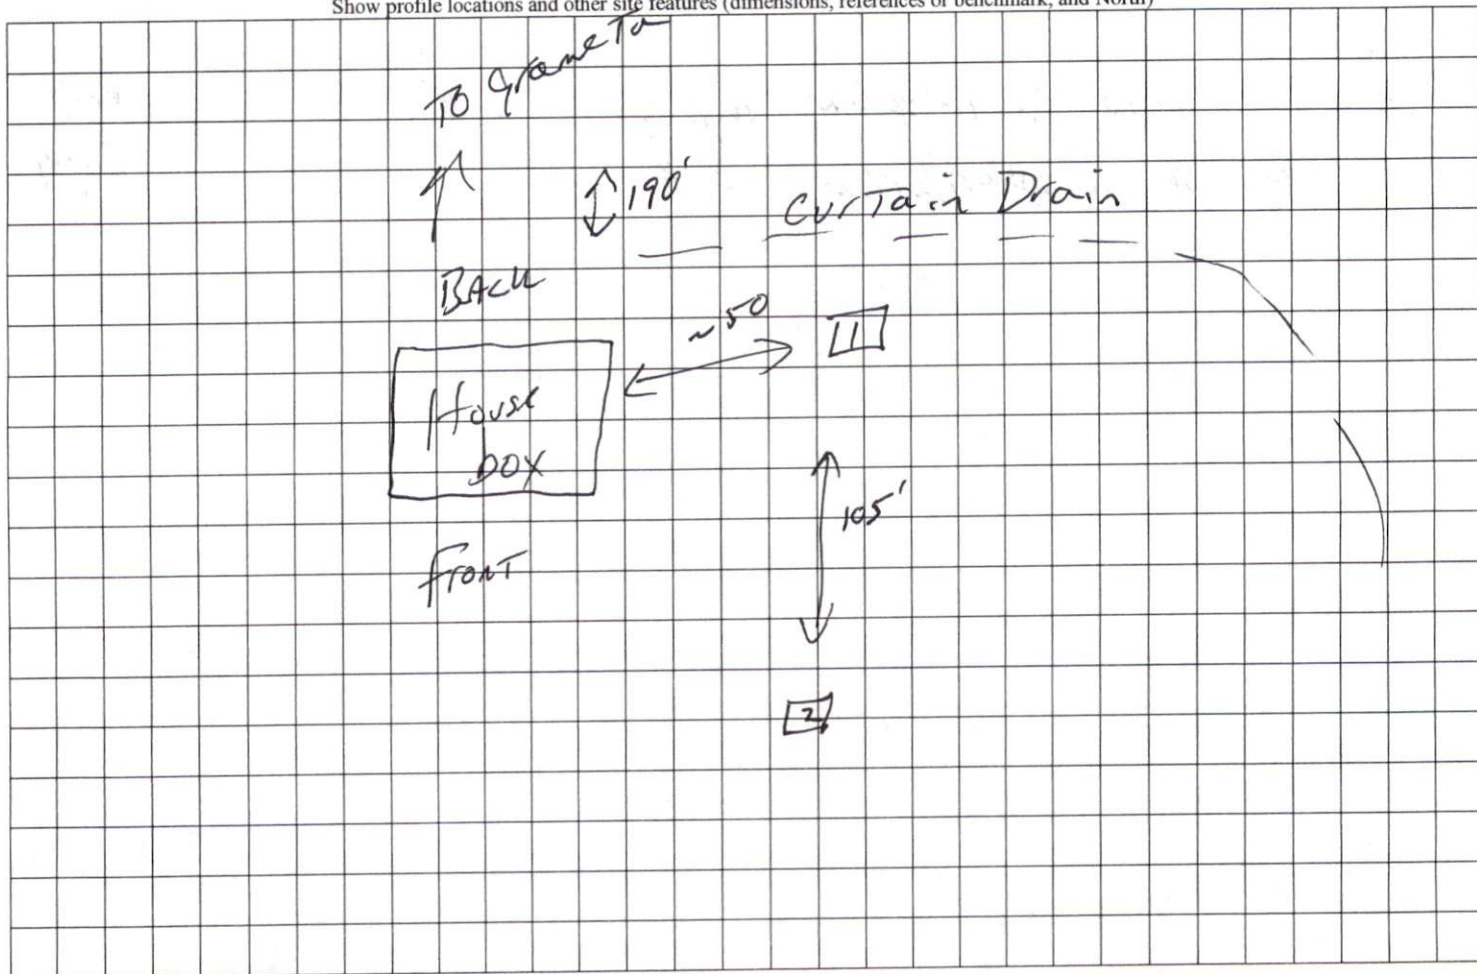 Show profile locations and other site features (dimensions, references or benchmark, and North)
To
190'
Curtain Drain
BACK
~50
1
House
box
105'
FRONT
2